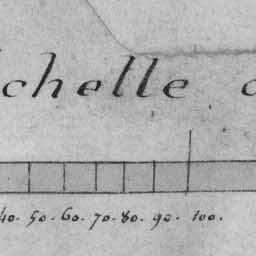 chelle
40. 50. 60. 70. 80. 90. 100.